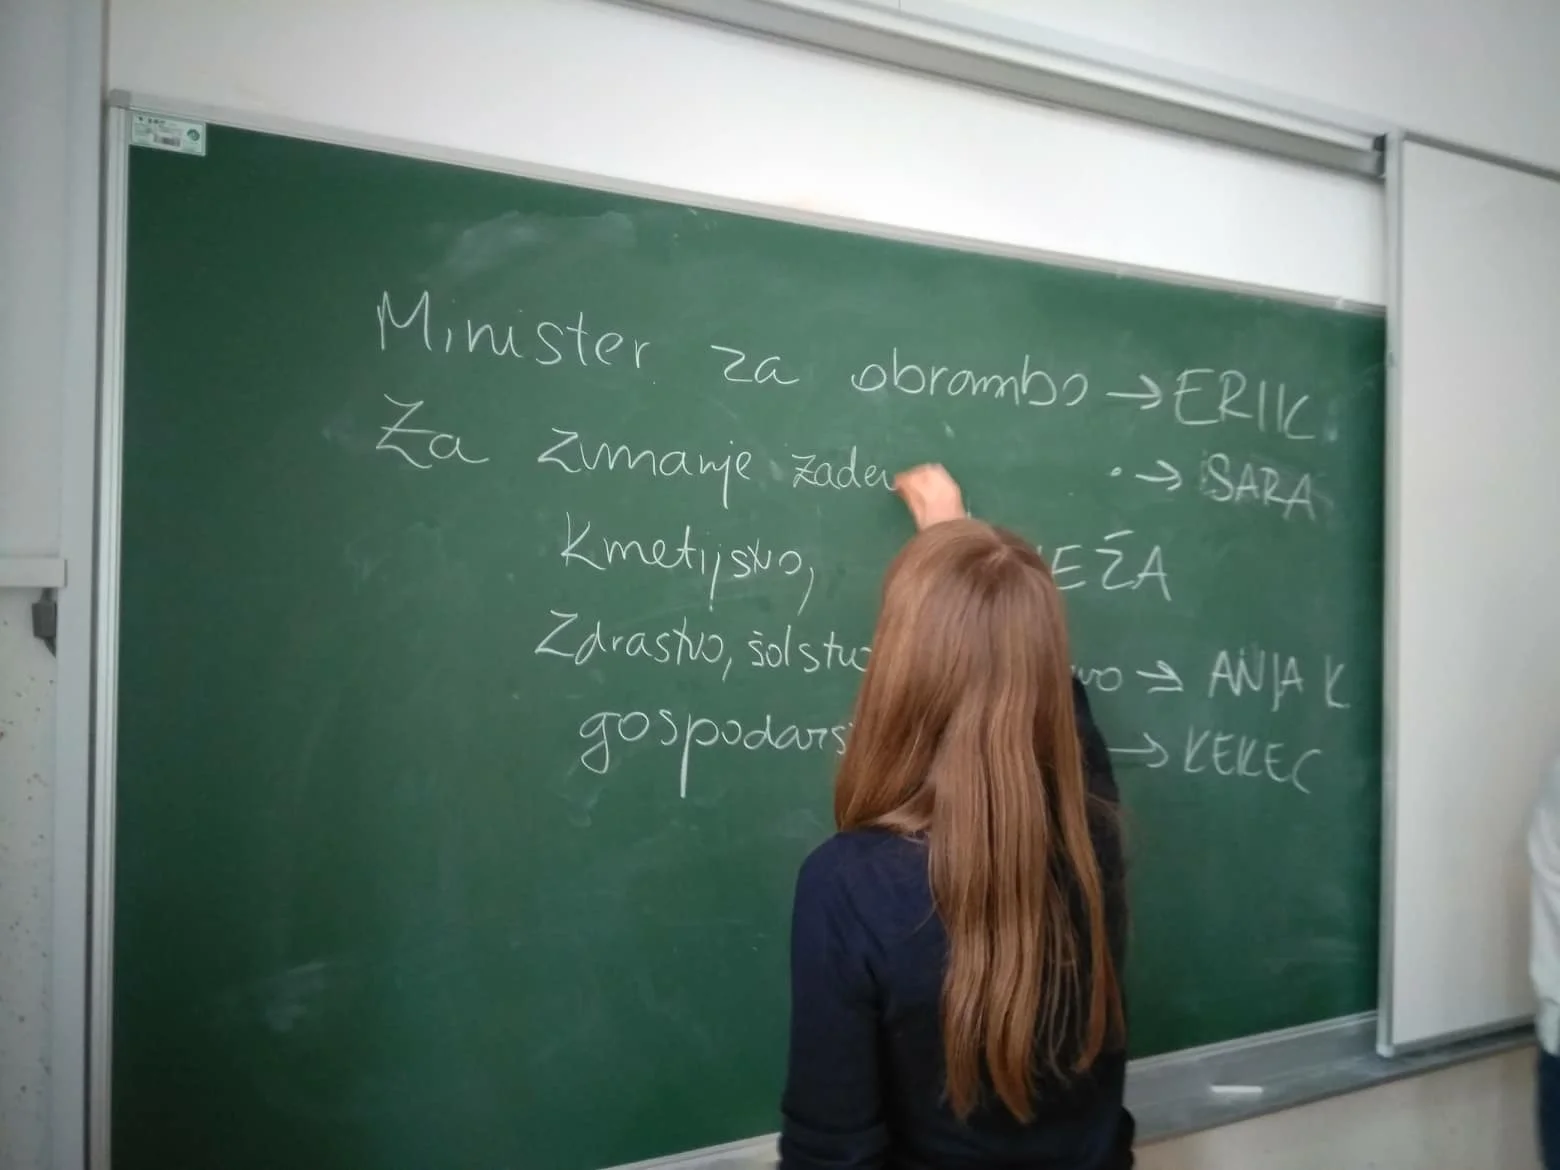 Minister za obrambo → ERIK
Za zunanje zadev → SARA
Kmetijstvo, EŽA
Zdrastvo, šolstvo vo → ANJA K
gospodars → KEKEC